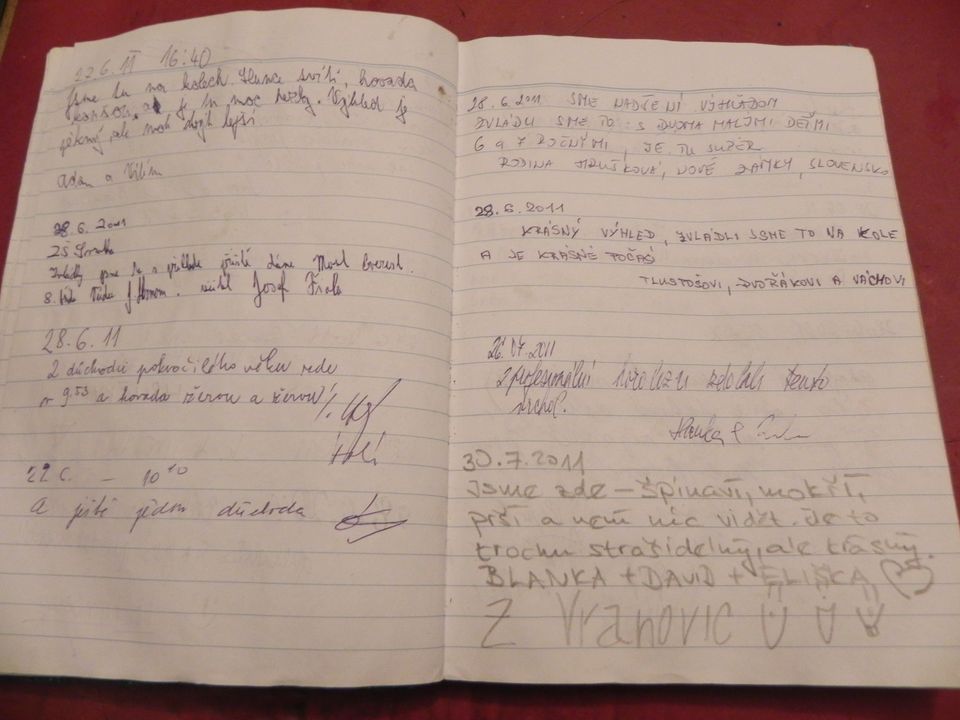 22.6.11 16:40
Jsme tu na kolech. Slunce svítí, hovada
je tu moc hezky. Výhled je
pěkný, ale mohl být lepší
Adam a Vilém
28.6. 2011
ZŠ
jsme to příště dáme Mout Everest.
8. třída učitel Josef
28.6.11
2 důchodci pokročilého věku
v 9.53 a hovada žerou a žerou!
22.6. - 10 10
A ještě jeden důchoda
28.6.2011 SME NADŠENÍ VÝHĽADOM
ZVLÁDLI SME TO S DVOMA MALÝMI DEŤMI
6 a 7 ROČNÝMI, JE TU SUPER
RODINA HRUŠKOVÁ, NOVÉ ZÁMKY, SLOVENSKO
28.6.2011
KRÁSNÝ VÝHLED, ZVLÁDLI JSME TO NA KOLE
A JE KRÁSNÉ POČASÍ
TLUSTOŠOVI, DVOŘÁKOVI A VÁCHOVI
26.07.2011
2 profesionální horolezci zdolali tento
vrchol.
Hanka &
30.7.2011
Jsme zde - špinaví, mokří,
prší a není nic vidět. Je to
trochu strašidelný, ale krásný.
BLANKA + DAVID + ELIŠKA
Z Vranovic